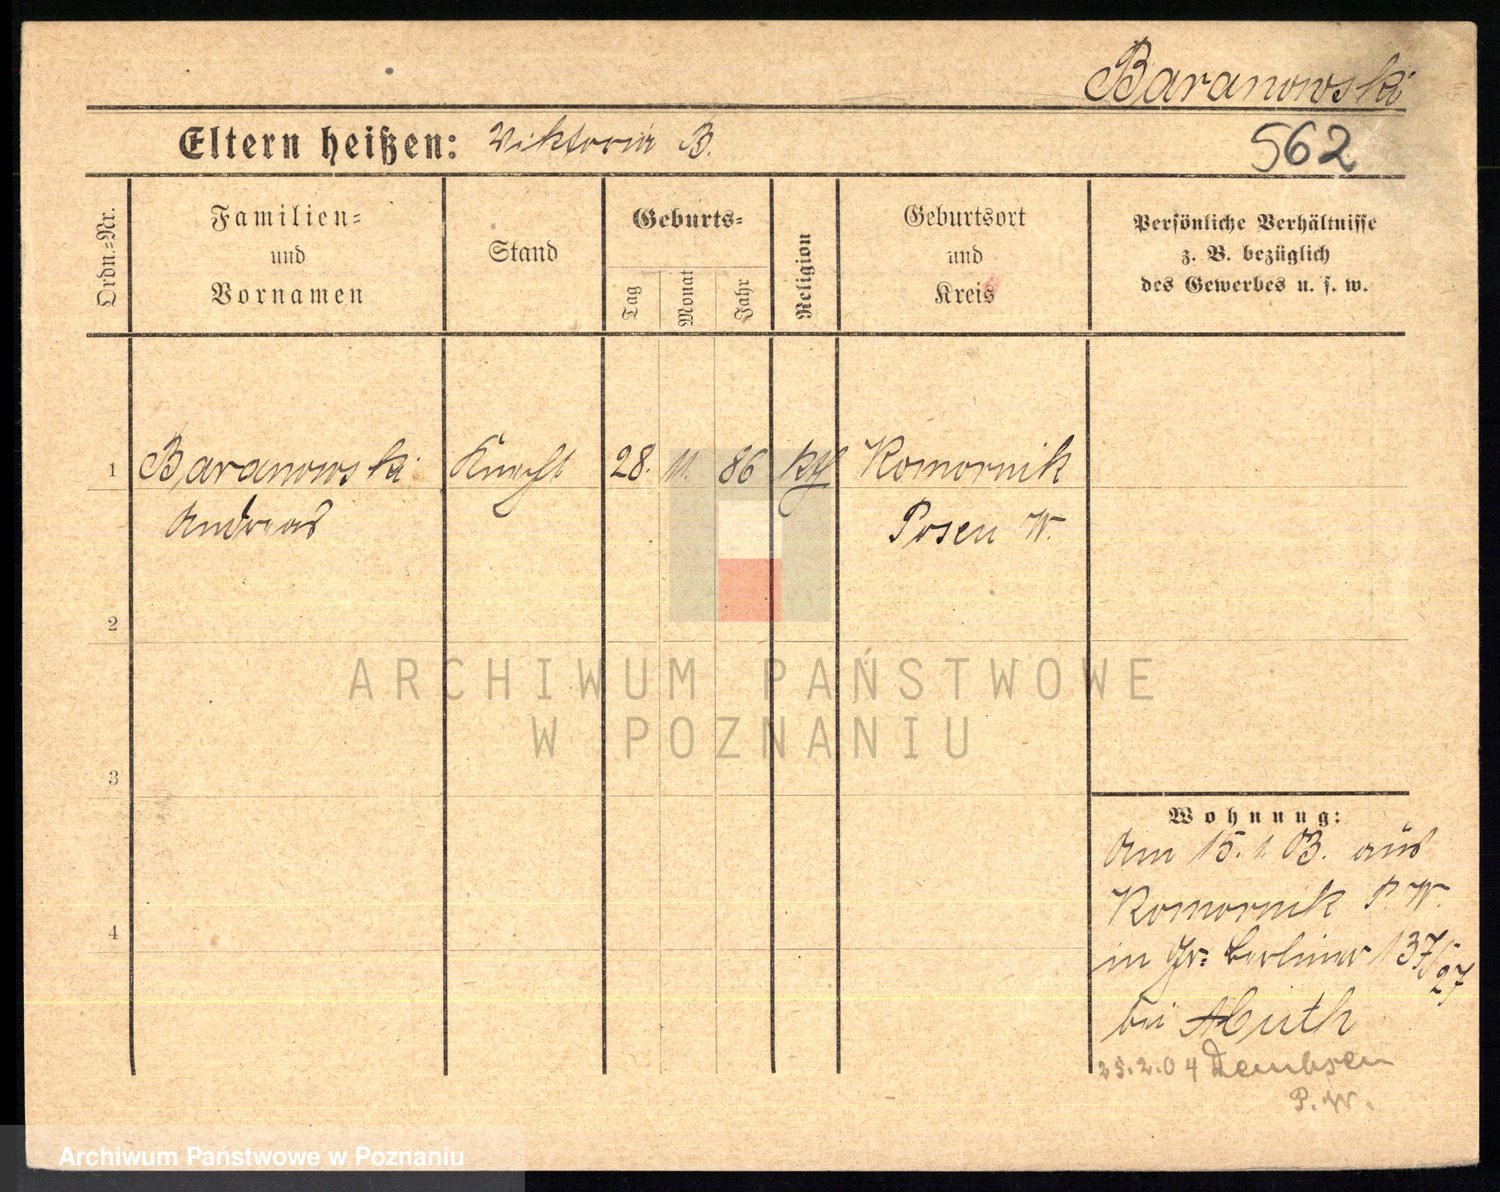 Baranowski
Eltern heißen: Viktoria B.
562
Ordn.=Nr.
Familien=
und
Vornamen
Stand
Geburts=
Tag
Monat
Jahr
Religion
Geburtsort
und
Kreis
Persönliche Verhältnisse
z. B. bezüglich
des Gewerbes u. s. w.
1 Baranowski Knecht 28. 11. 86 kth Komornik
Andreas Posen W.
2
ARCHIWUM PAŃSTWOWE
W POZNANIU
3
Wohnung:
Am 15.1.03. aus
Komornik P. W.
4
in Gr: Berliner 137/
27
bei Muth
25.2.04 Dembsen
P. W.
Archiwum Państwowe w Poznaniu